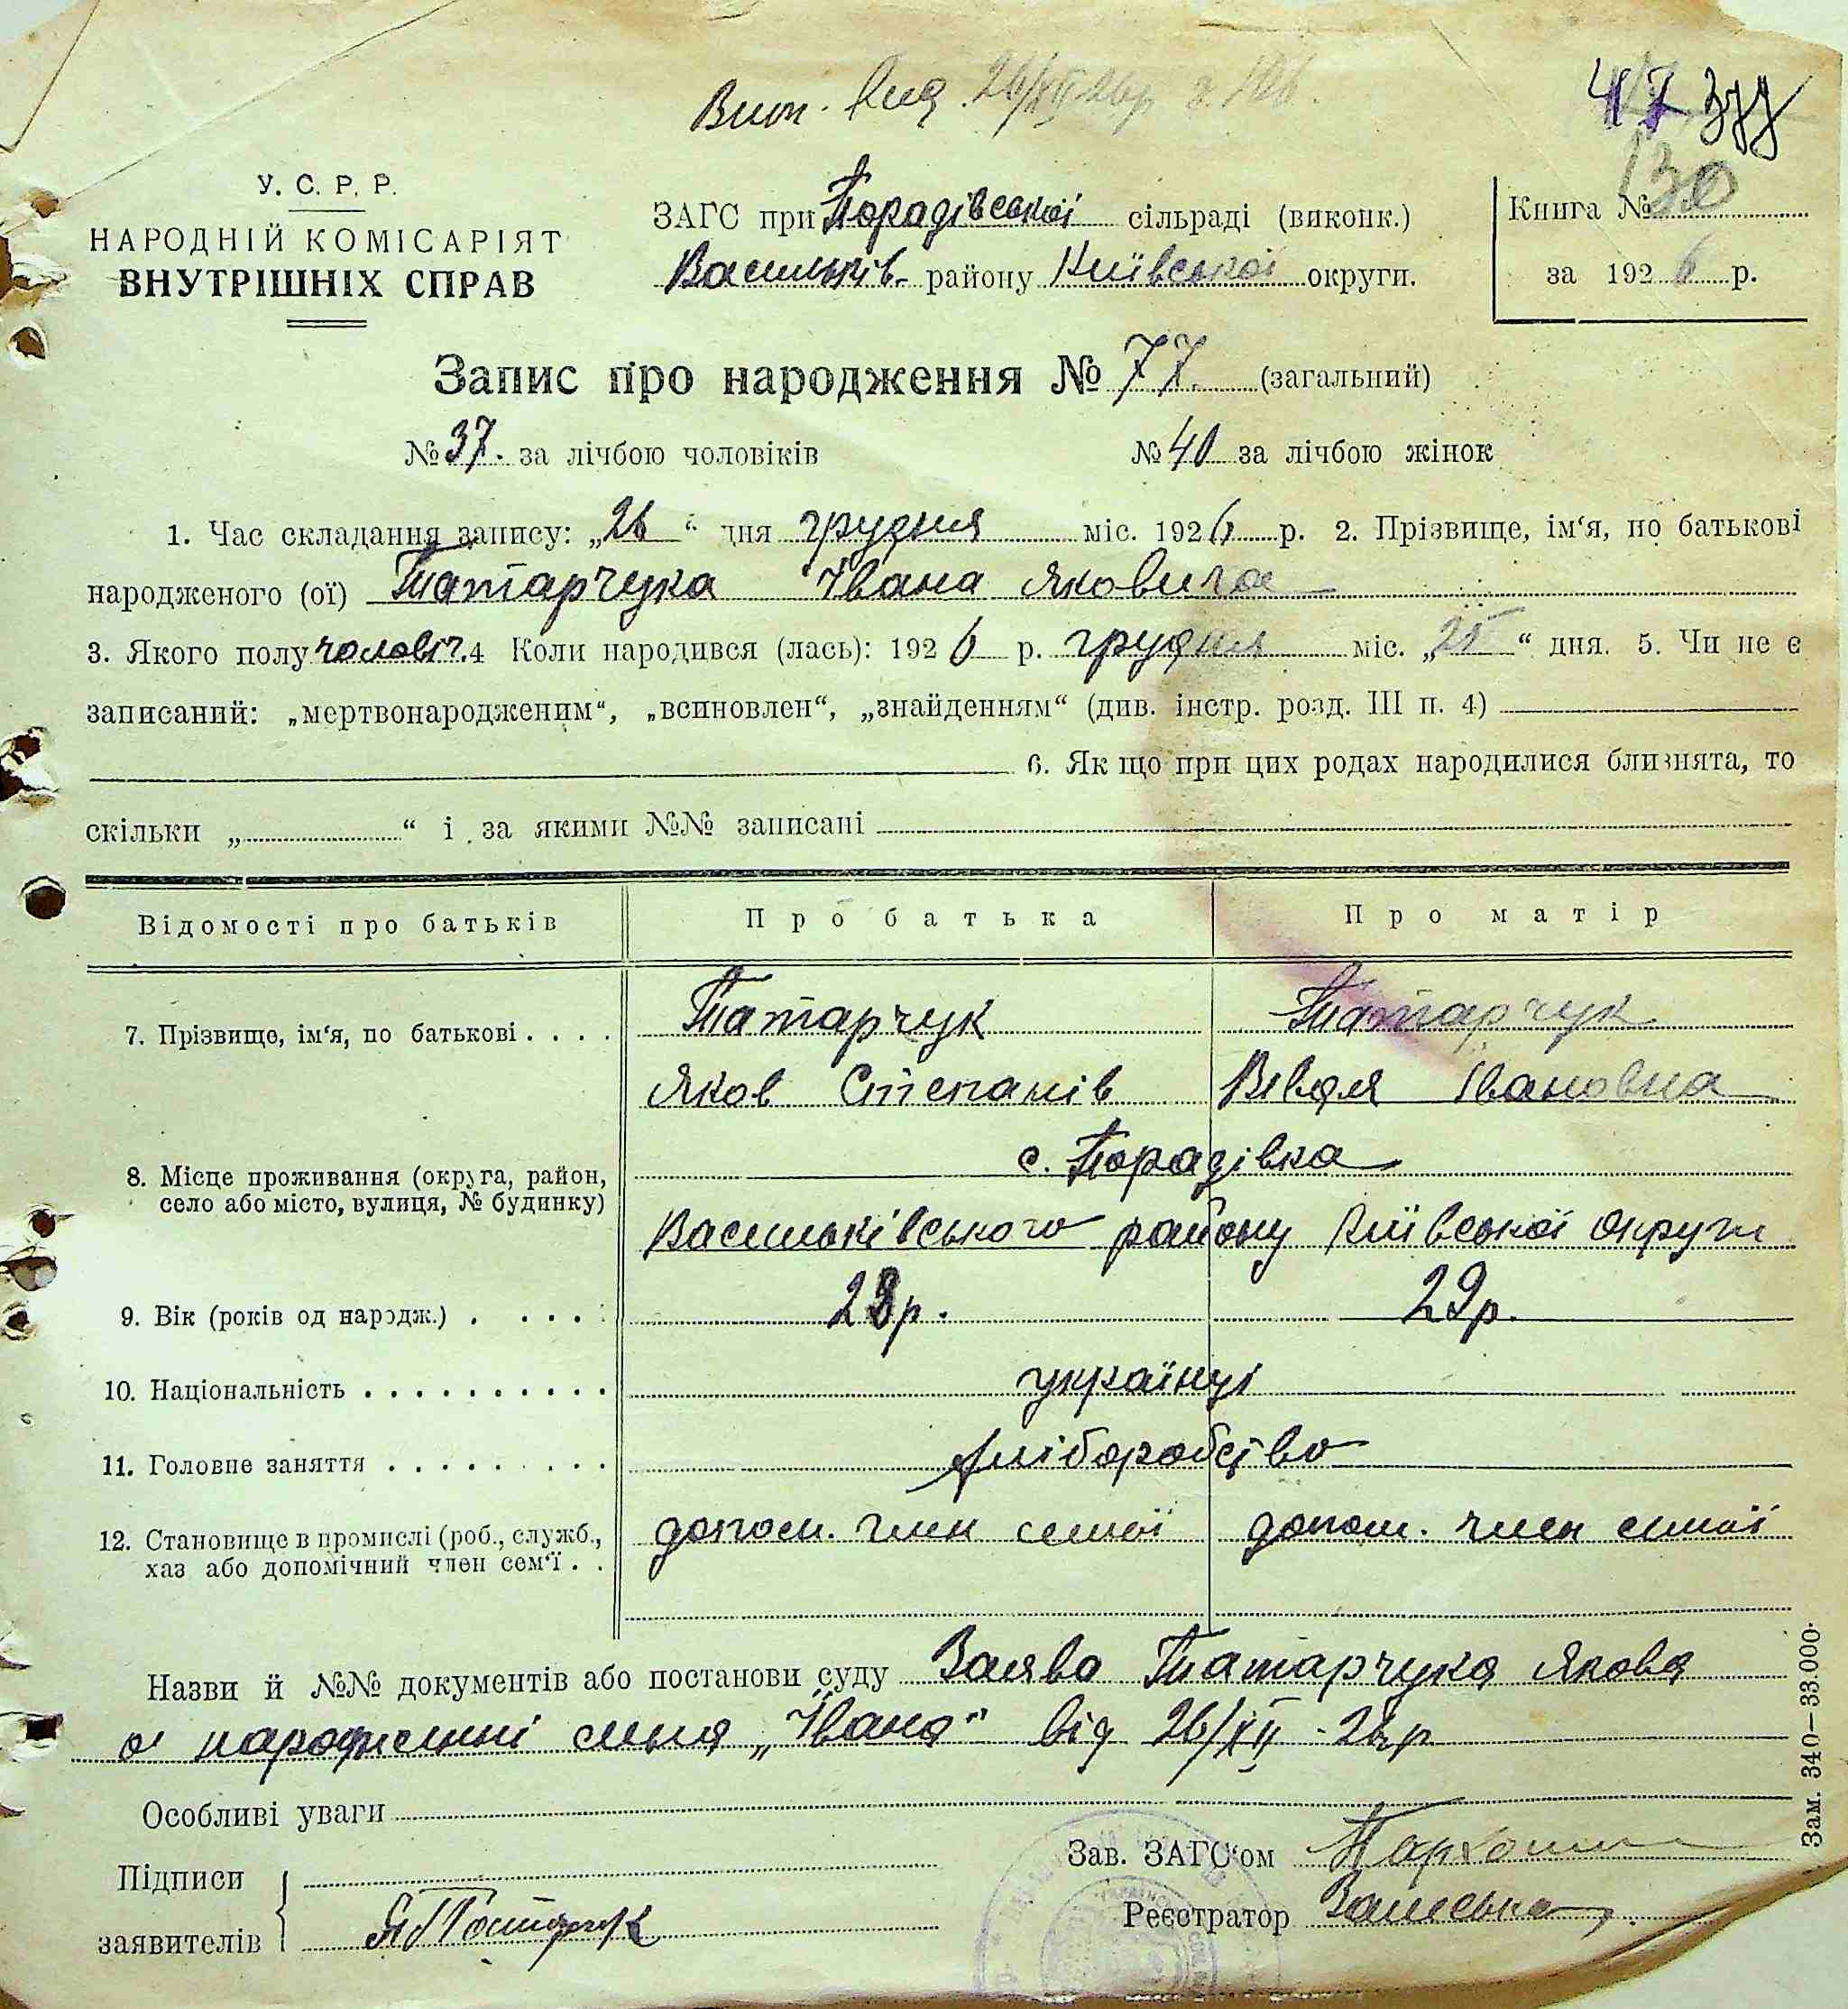 Вип. вид. 26/XII 26р.
377
130
У. С. Р. Р.
НАРОДНІЙ КОМІСАРІЯТ
ВНУТРІШНІХ СПРАВ
ЗАГС при Порадівської сільраді (виконк.)
Васильків. району Київської округи.
Книга №
за 1926 р.
Запис про народження № 77. (загальний)
№ 37. за лічбою чоловіків № 40 за лічбою жінок
1. Час складання запису: „26“ дня грудня міс. 1926 р. 2. Прізвище, ім‘я, по батькові
народженого (ої) Татарчука Івана Яковича
3. Якого полу чоловіч. 4 Коли народився (лась): 1926 р. грудня міс. „25“ дня. 5. Чи не є
записаний: „мертвонародженим“, „всиновлен“, „знайденням“ (див. інстр. розд. III п. 4)
6. Як що при цих родах народилися близнята, то
скільки „ “ і за якими №№ записані
Відомості про батьків Про батька Про матір
7. Прізвище, ім‘я, по батькові . . . . Татарчук Татарчук
Яков Степанів Вівдя Івановна
8. Місце проживання (округа, район, с. Порадівка
село або місто, вулиця, № будинку)
Васильківського району Київської округи
9. Вік (років од народж.) . . . . . 28р. 29р.
10. Національність . . . . . . . . . . українці
11. Головне заняття . . . . . . . . . хліборобство
12. Становище в промислі (роб., служб., допом. член семьї допом. член семьї
хаз або допомічний член сем‘ї . .
Назви й №№ документів або постанови суду Заява Татарчука Якова
о народженні сина „Івана“ від 26/XII - 26р
Особливі уваги
Зав. ЗАГС‘ом
Підписи
Реєстратор
заявителів
Зам. 340—33.000.